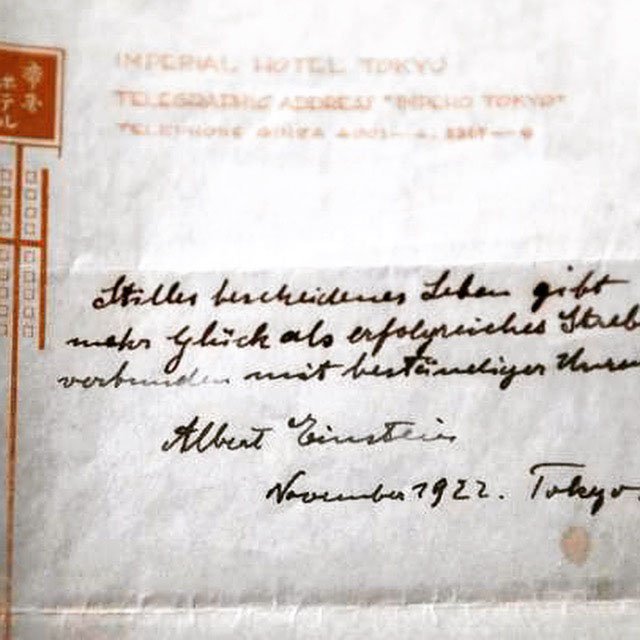 帝国
ホテル
IMPERIAL HOTEL TOKYO
TELEGRAPHIC ADDRESS "IMPEHO TOKYO"
TELEPHONE GINZA
Stilles bescheidenes Leben gibt
mehr Glück als erfolgreiches Streb
verbunden mit beständiger Unru
Albert Einstein
November 1922. Tokyo